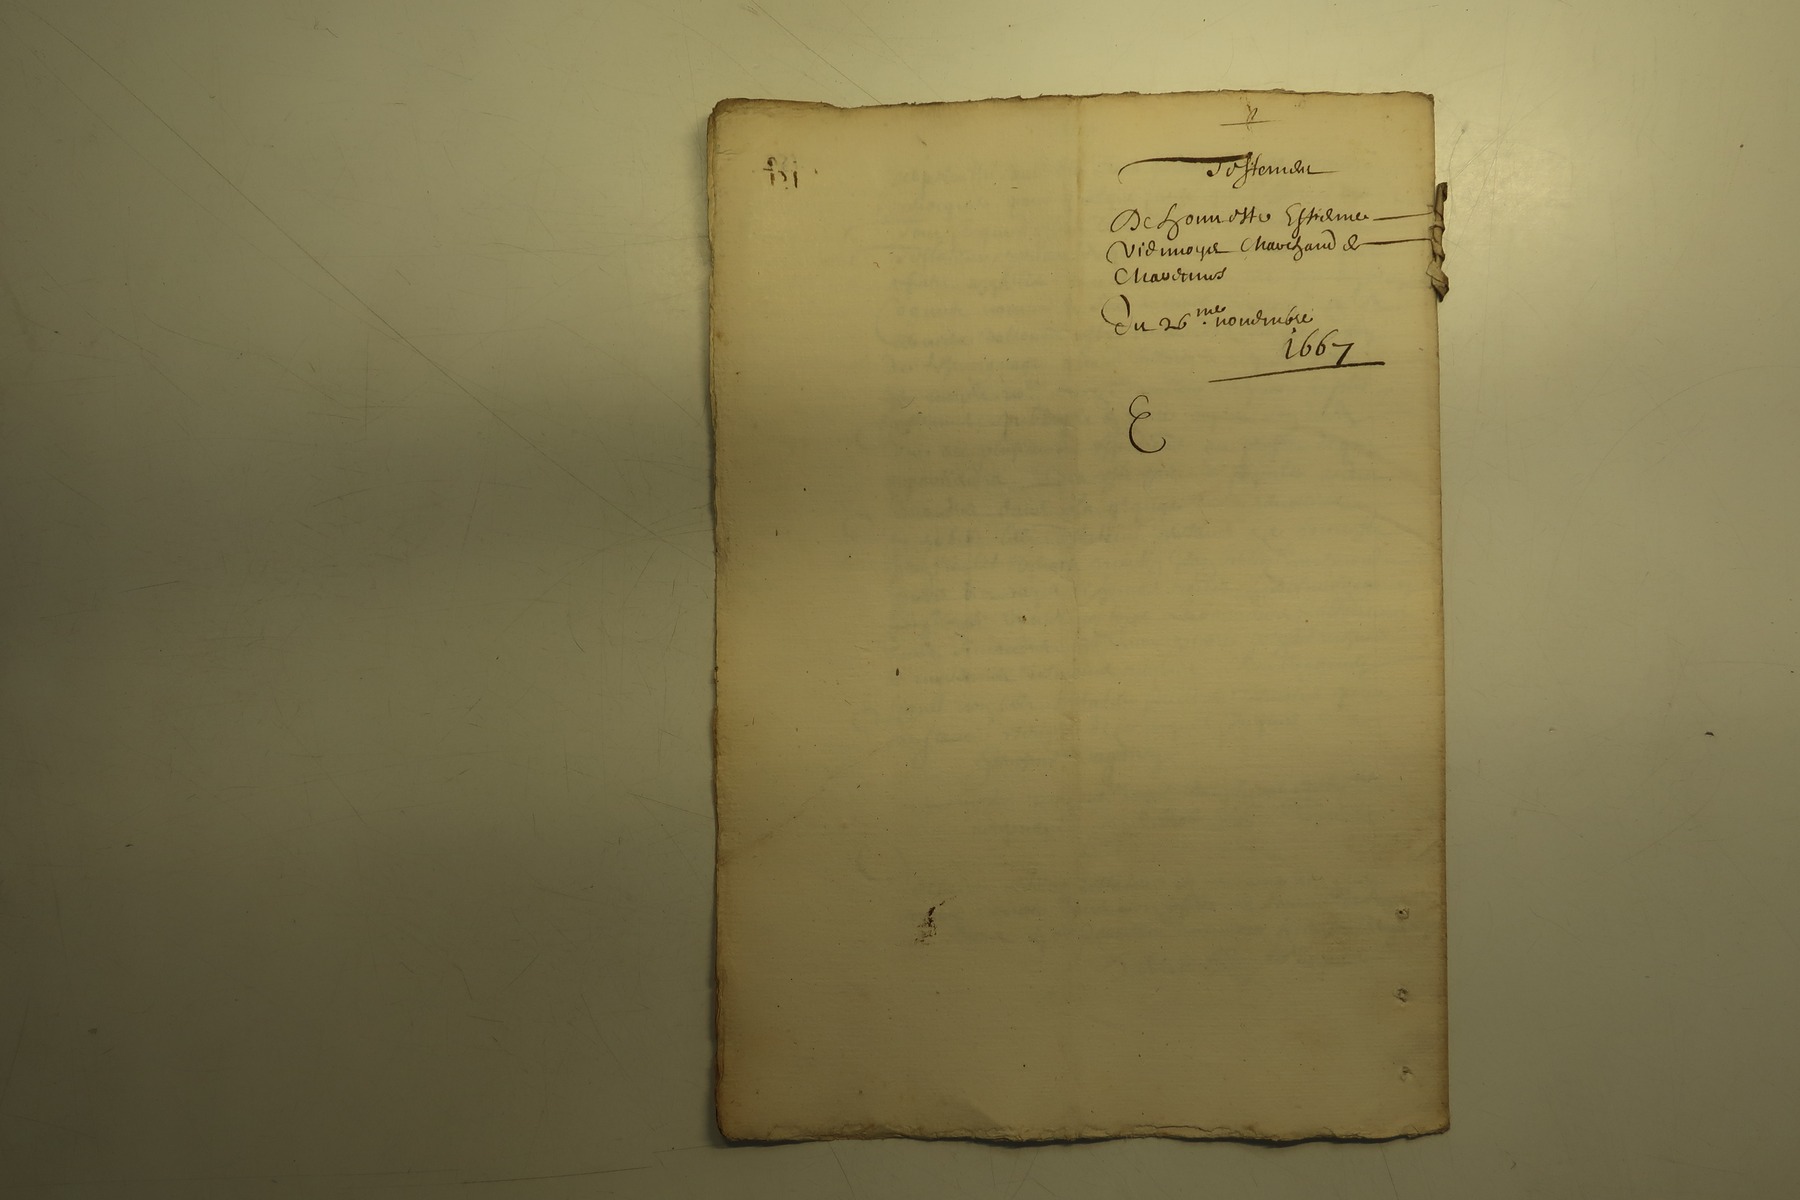 Testement
De honneste Estienne
Viennoys Marchand de
Charennes
Du 26me novembre
1667
E